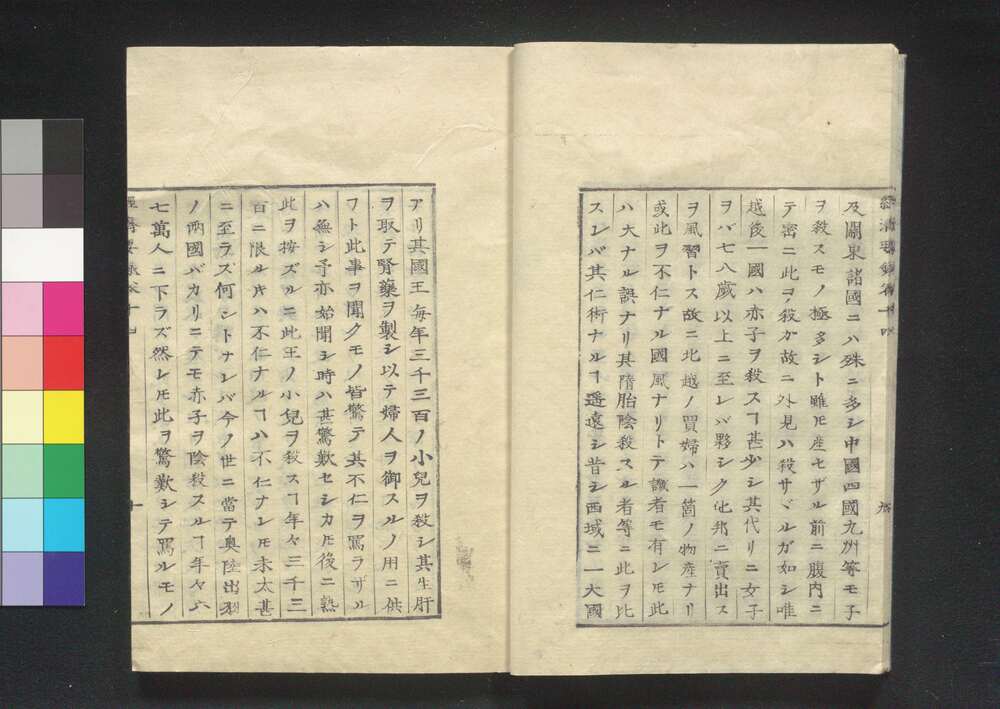 及關東諸國ニハ殊ニ多シ中國四國九州等モ子
ヲ殺スモノ極多シト雖𪜈産セザル前ニ腹内ニ
テ密ニ此ヲ殺ガ故ニ外見ハ殺サヾルガ如シ唯
越後一國ハ赤子ヲ殺スヿ甚少シ其代リニ女子
ヲバ七八歳以上ニ至レバ夥シク他邦ニ賣出ス
ヲ風習トス故ニ北越ノ買婦ハ一箇ノ物産ナリ
或此ヲ不仁ナル國風ナリトテ譏者モ有レ𪜈此
ハ大ナル誤ナリ其隋胎陰殺スル者等ニ此ヲ比
スレバ其仁術ナルヿ遥遠シ昔シ西域ニ一大國
九
アリ其國王毎年三千三百ノ小兒ヲ殺シ其生肝
ヲ取テ腎藥ヲ製シ以テ婦人ヲ御スルノ用ニ供
フト此事ヲ聞クモノ皆驚テ其不仁ヲ罵ラザル
ハ無シ予亦始聞シ時ハ甚驚歎セシカ𪜈後ニ熟
此ヲ按ズルニ此王ノ小兒ヲ殺スヿ年々三千三
百ニ限ル片ハ不仁ナルヿハ不仁ナレ𪜈未太甚
ニ至ラズ何ントナレバ今ノ世ニ當テ奥陸出羽
ノ兩國バカリニテモ赤子ヲ陰殺スルヿ年々六
七萬人ニ下ラズ然レ𪜈此ヲ驚歎シテ罵ルモノ
十